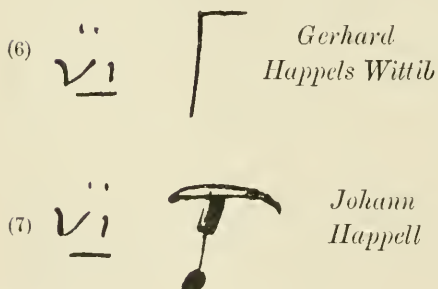 (6) vi Gerhard
Happels Wittib
(7) vi Johann
Happell